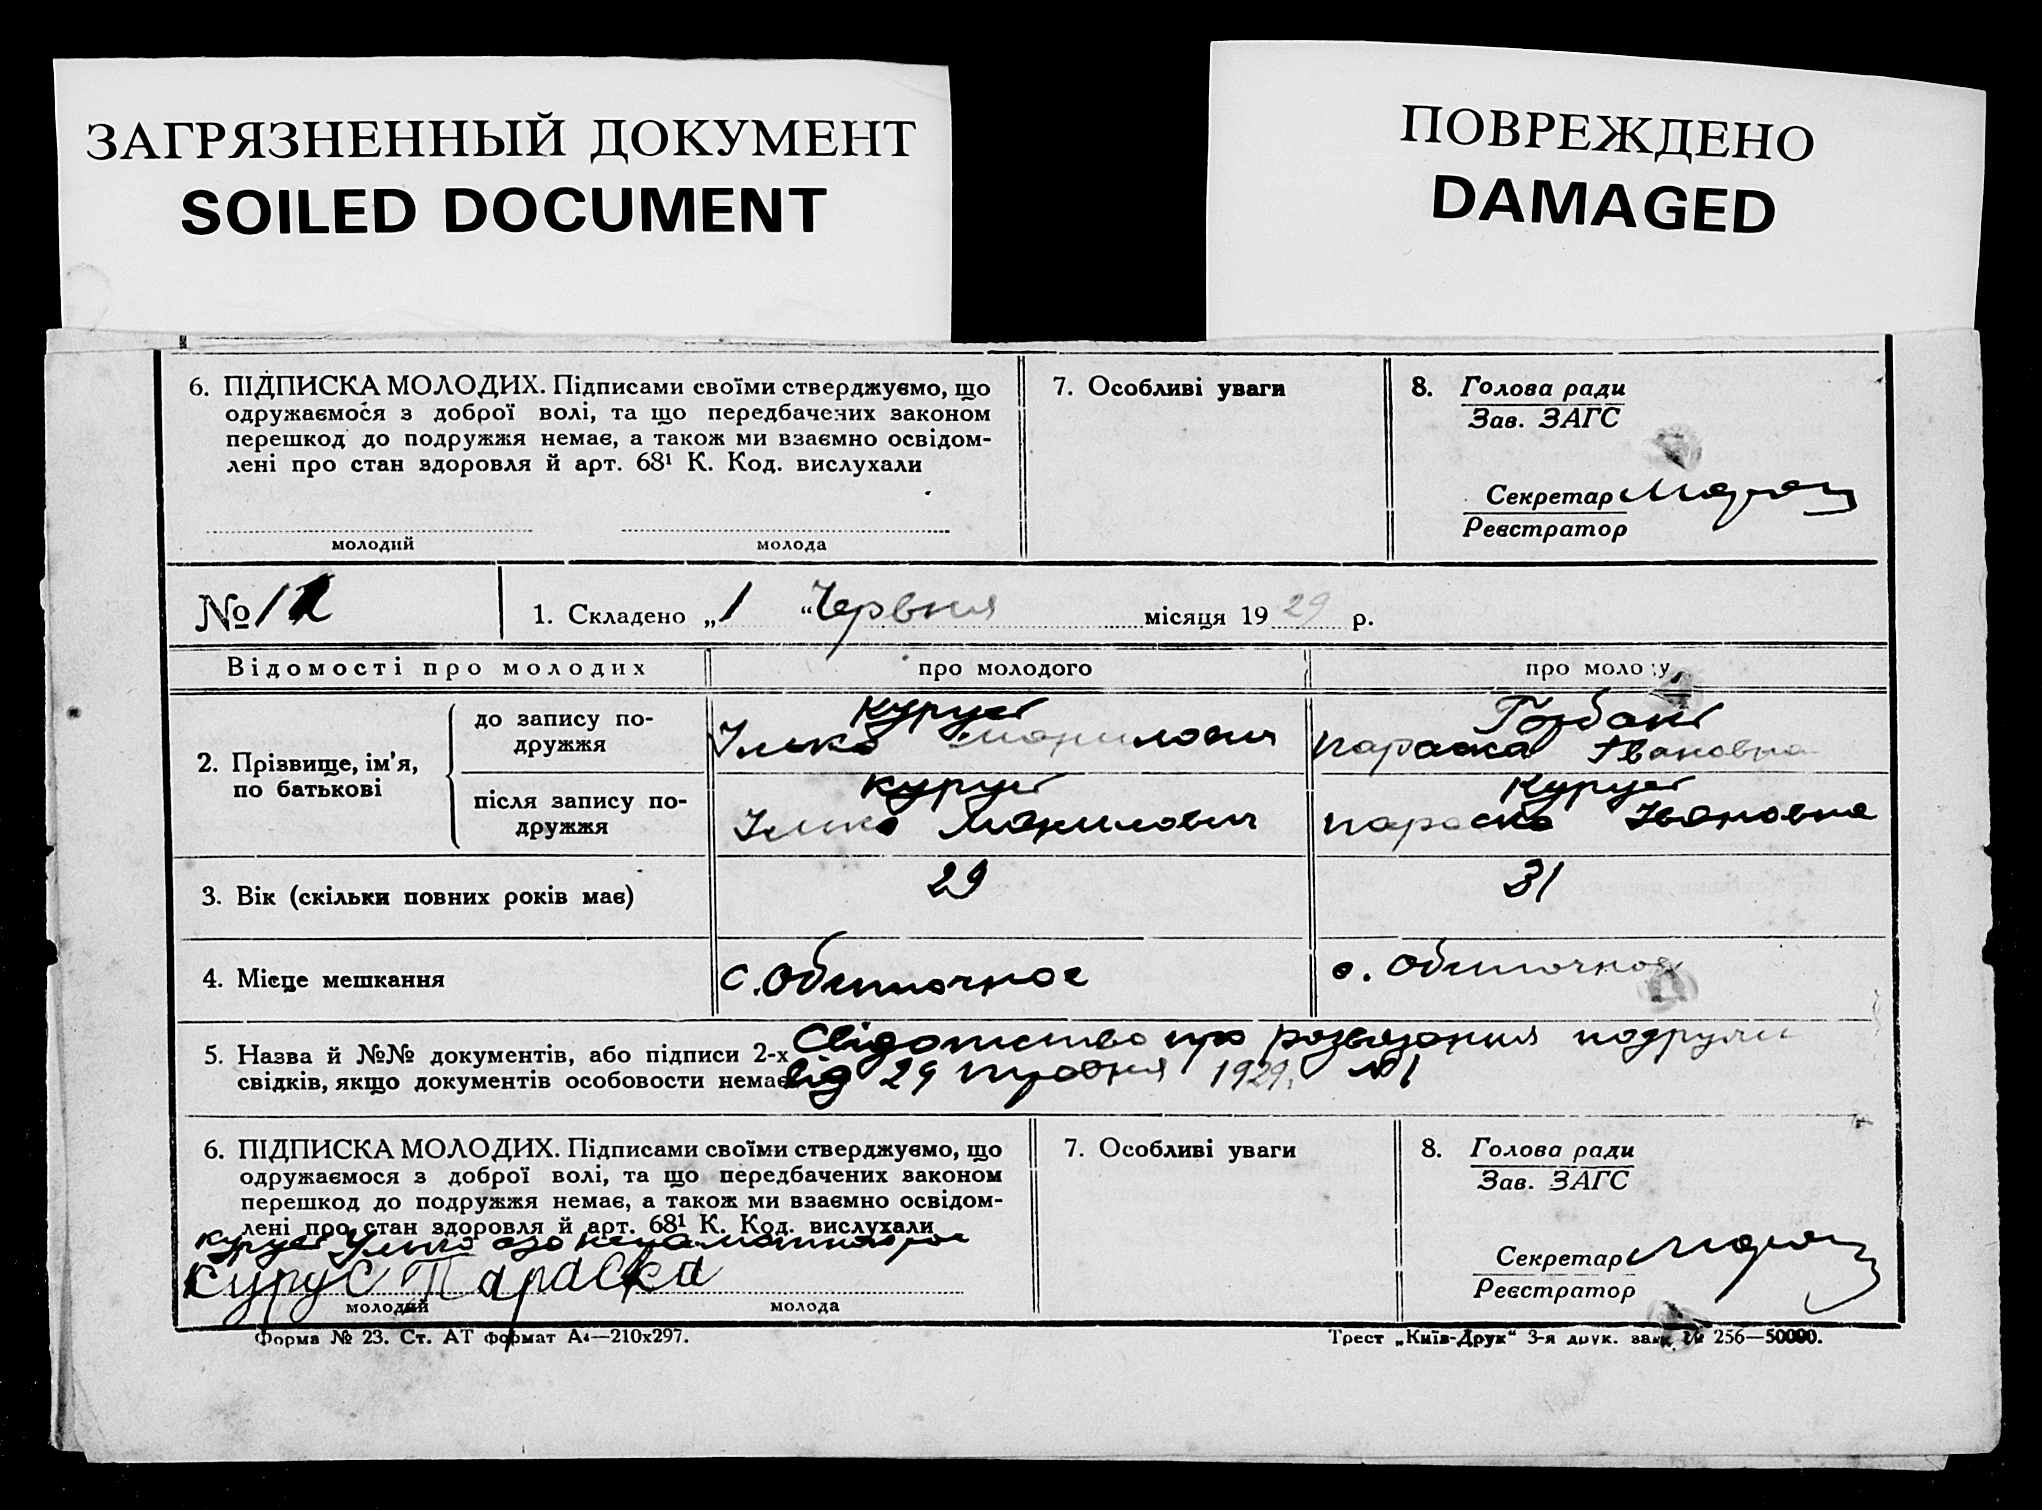 ЗАГРЯЗНЕННЫЙ ДОКУМЕНТ
SOILED DOCUMENT
ПОВРЕЖДЕНО
DAMAGED
6. ПІДПИСКА МОЛОДИХ. Підписами своїми стверджуємо, що
одружаємося з доброї волі, та що передбачених законом
перешкод до подружжя немає, а також ми взаємно освідом-
лені про стан здоровля й арт. 68¹ К. Код. вислухали
молодий
молода
7. Особливі уваги
8. Голова ради
Зав. ЗАГС
Секретар
Реєстратор
№ 12
1. Складено „1“ Червня місяця 1929 р.
Відомості про молодих
про молодого
про моло у
2. Прізвище, ім'я,
по батькові
до запису по-
дружжя
Курус
Илько
Горбань
Параска Ивановна
після запису по-
дружжя
Курус
Илько
Курус
Параска Ивановна
3. Вік (скільки повних років має)
29
31
4. Місце мешкання
с. Обиточное
с. Обиточное
5. Назва й №№ документів, або підписи 2-х
свідків, якщо документів особовости немає
Свідотство про розвязання
від 29 травня 1929. №1
6. ПІДПИСКА МОЛОДИХ. Підписами своїми стверджуємо, що
одружаємося з доброї волі, та що передбачених законом
перешкод до подружжя немає, а також ми взаємно освідом-
лені про стан здоровля й арт. 68¹ К. Код. вислухали
Курус Илько
Курус Параска
молодий
молода
7. Особливі уваги
8. Голова ради
Зав. ЗАГС
Секретар
Реєстратор
Форма № 23. Ст. АТ формат А4—210х297.
Трест „Київ-Друк“ 3-я друк. зак. № 256—50000.